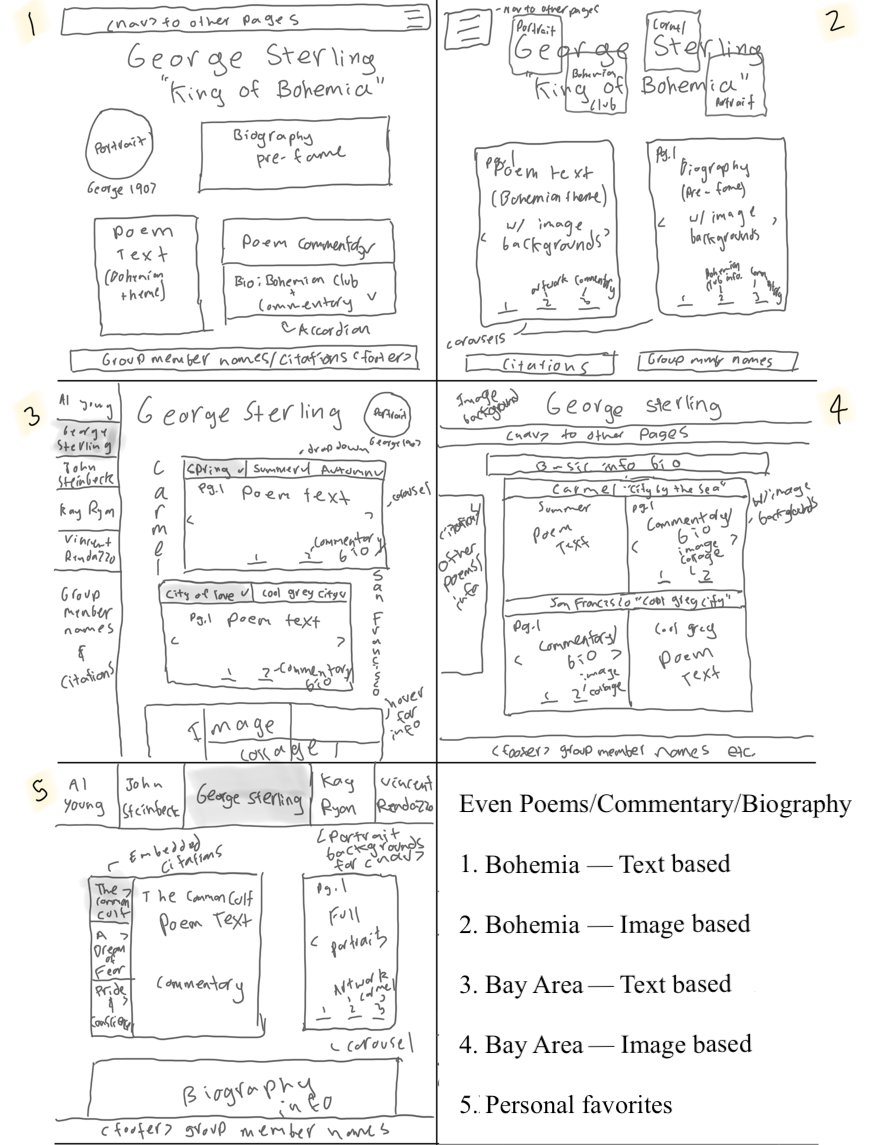 1
<nav> to other pages
George Sterling
"King of Bohemia"
Portrait
George 1907
Biography
pre-fame
Poem
Text
(Bohemian
theme)
Poem Commentary
Bio: Bohemian Club
+
Commentary v
Accordian
Group member names/citations <footer>
2
- nav to other pages
Portrait
Carmel
George Sterling
"King of Bohemia"
Bohemian
Club
Portrait
pg.1
Poem text
(Bohemian theme)
w/ image
< backgrounds >
artwork Commentary
1 2 3
Pg.1
Biography
(Pre-fame)
< w/ image >
backgrounds
Bohemian
Club info.
1 2 3
carousels
Citations
Group memb names
3
Al Young
George
Sterling
John
Steinbeck
Kay Ryan
Vincent
Rendazzo
Group
member
names
&
Citations
George Sterling
Portrait
George 1907
dropdown
Carmel
Spring v Summer v Autumn v
Pg.1 Poem text
carousel
< >
Commentary
bio
1 2
City of love v cool grey city v
Pg.1 Poem text
< >
1 2 - Commentary
bio
San Francisco
Image
collage
hover
for
info
4
Image
background
George Sterling
<nav> to other pages
Basic info bio
Carmel "City by the Sea"
w/ image
backgrounds
citation/
other
poems/
info
Summer
Poem
Text
Pg.1
Commentary/
bio
< image >
collage
1 2
San Francisco "Cool grey city"
Pg.1
Commentary/
< bio >
image
collage
1 2
Cool grey
Poem
Text
<footer> group member names etc.
5
Al
Young
John
Steinbeck
George Sterling
Kay
Ryan
Vincent
Rendazzo
Embedded
citations
(Portrait
backgrounds
for <nav>
The >
Common
Cult
A >
Dream
of
Fear
Pride
&
Conscience
The Common Cult
Poem Text
Commentary
Pg.1
Full
< portrait >
Artwork
Carmel
1 2 3
carousel
Biography
info
<footer> group member names
Even Poems/Commentary/Biography
1. Bohemia — Text based
2. Bohemia — Image based
3. Bay Area — Text based
4. Bay Area — Image based
5. Personal favorites